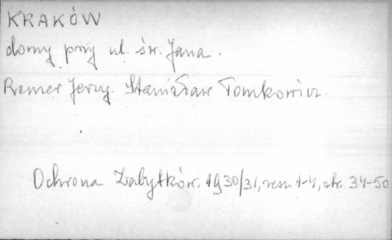 KRAKÓW
domy przy ul. św. Jana.
Remer Jerzy. Stanisław Tomkowicz.
Ochrona Zabytków. 1930/31, zesz. 1-4, str. 34-50